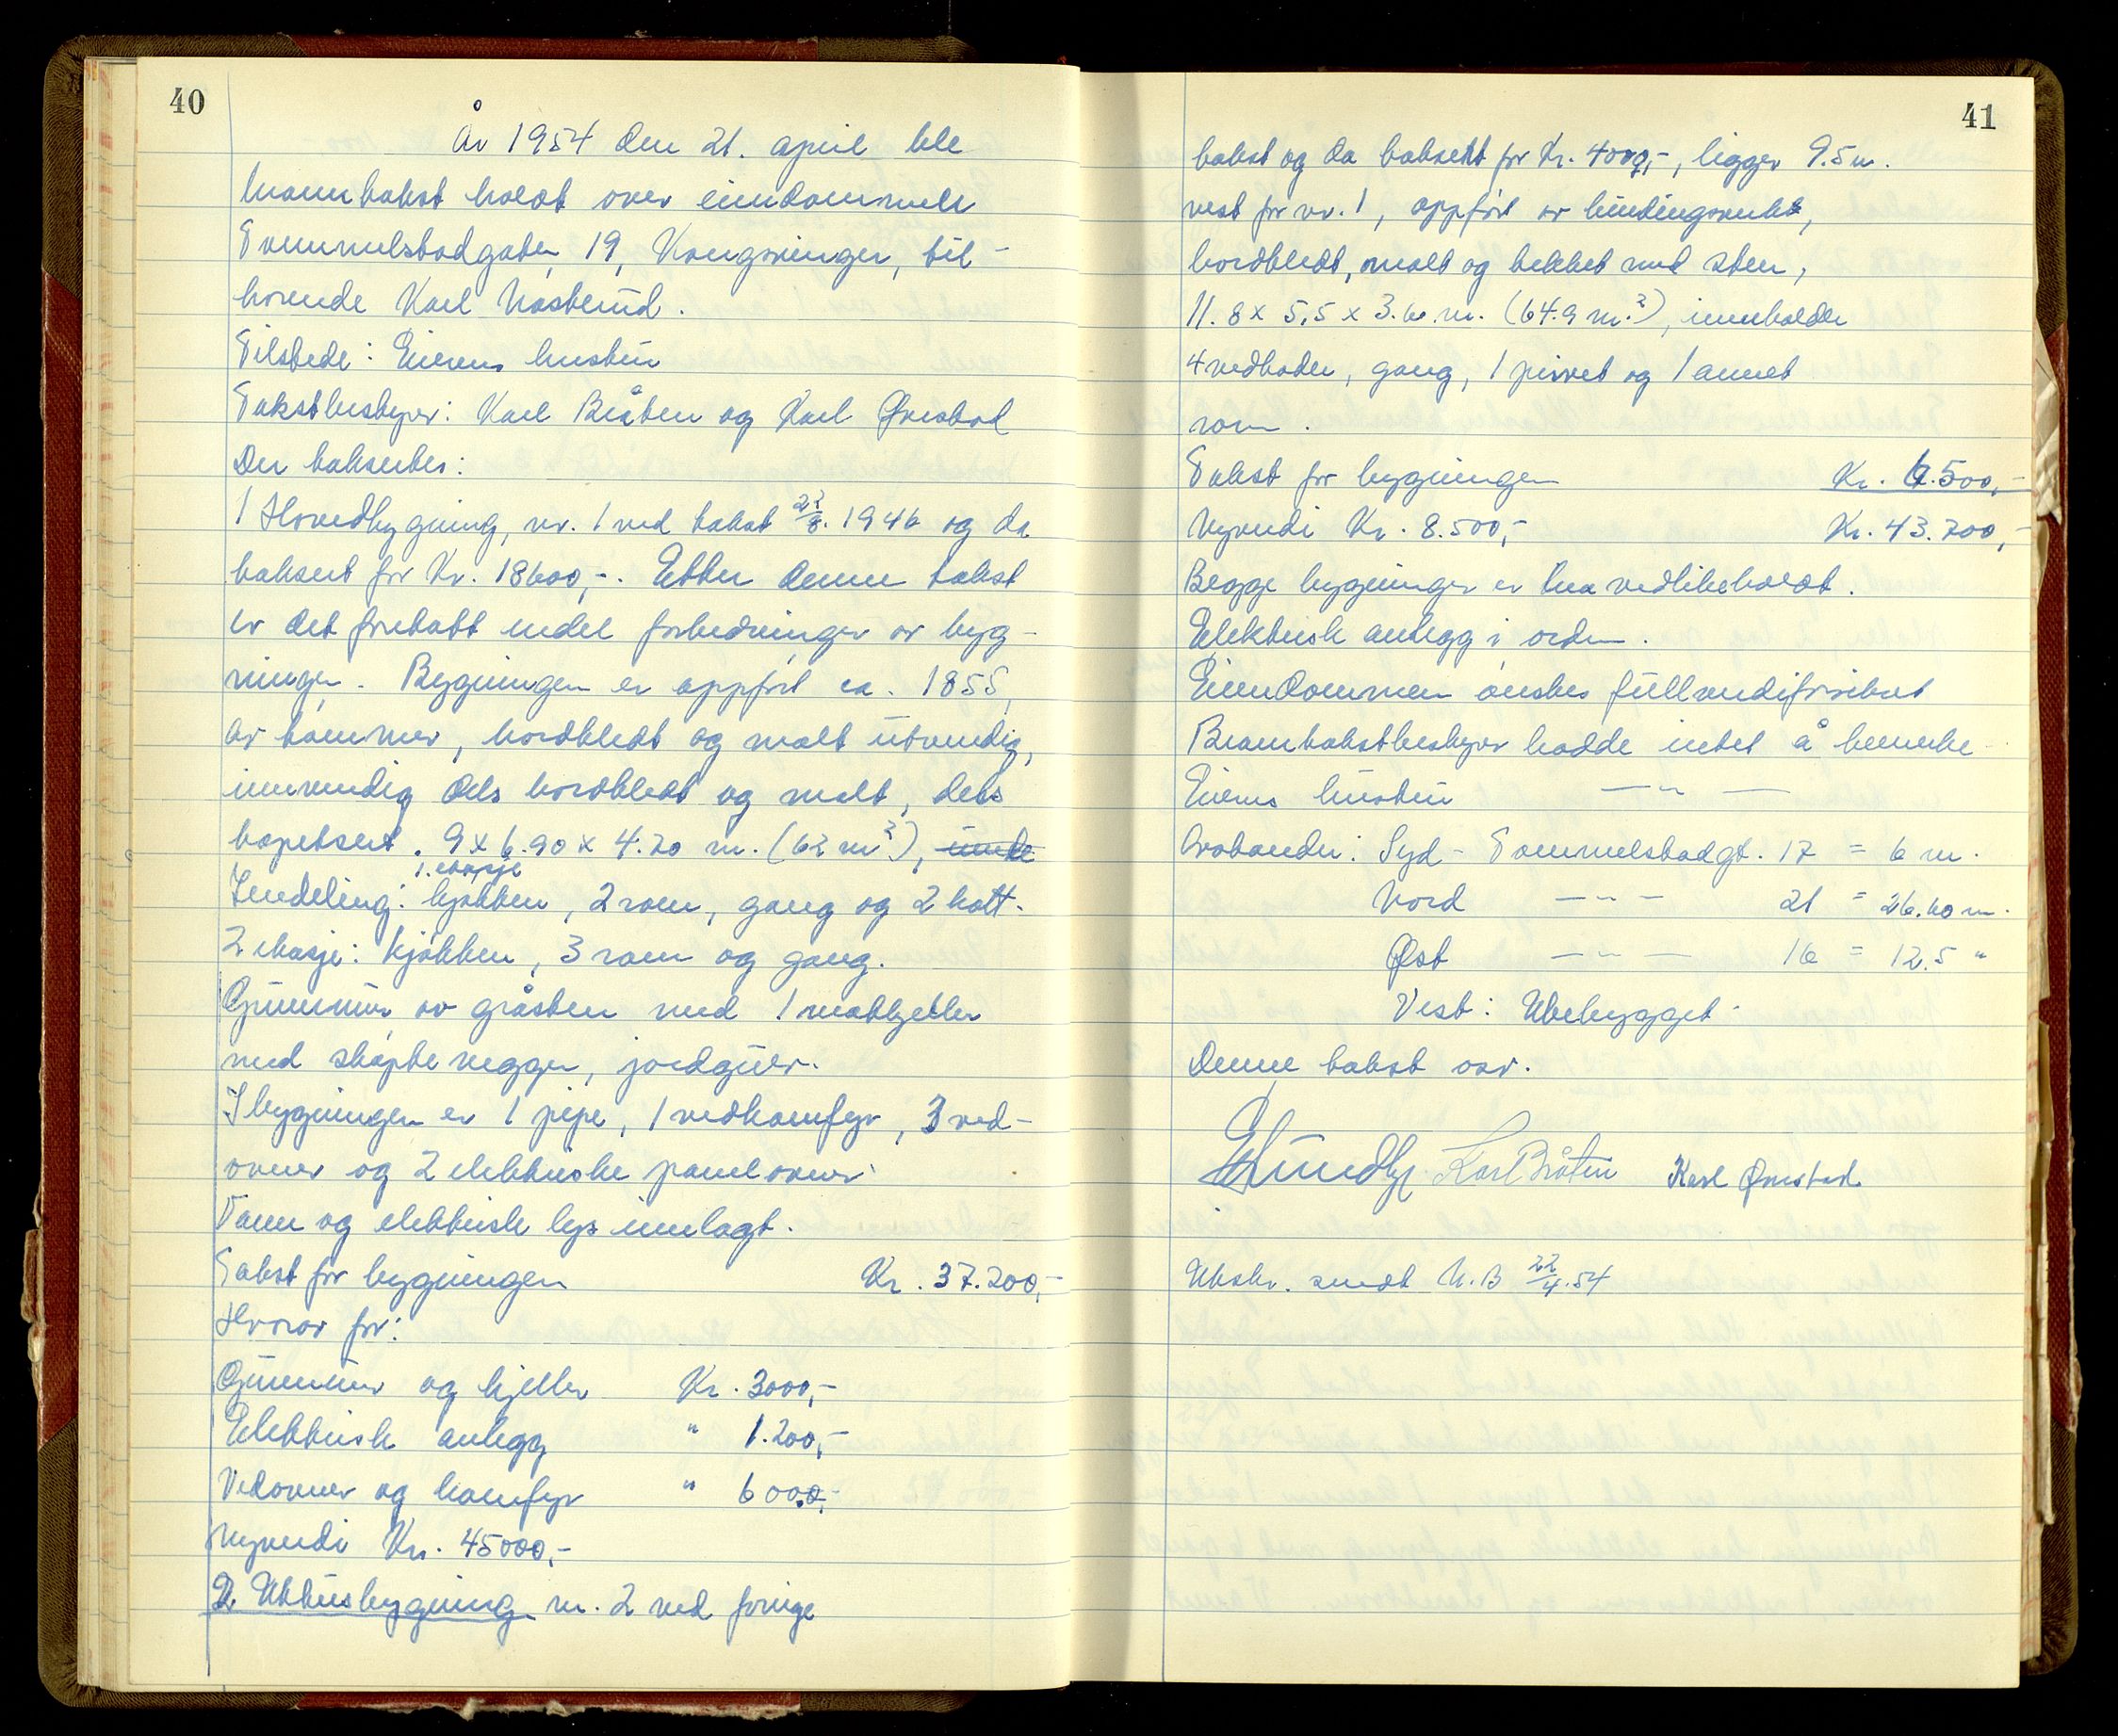 40
År 1954 den 21. april ble
branntakst holdt over eiendommen
Tommelstadgaten 19, Kongsvinger, til-
hørende Karl Nasterud.
Tilstede: Eierens hustru
Takstbestyrer: Karl Bråten og Karl Ørnstad
Der taksertes:
1 Hovedbygning, nr. 1 ved takst 22/8. 1946 og da
taksert for Kr. 18600,-. Etter denne takst
er det foretatt endel forbedringer av byg-
ningen. Bygningen er oppført ca. 1855,
av tømmer, bordkledt og malt utvendig,
innvendig dels bordkledt og malt, dels
tapetsert. 9 x 6.90 x 4.20 m. (62 m²),
1. etasje
Inndeling: kjøkken, 2 rom, gang og 2 kott.
2 etasje: kjøkken, 3 rom og gang.
Grunnmur av gråsten med 1 matkjeller
med støpte vegger, jordgulv.
I bygningen er 1 pipe, 1 vedkomfyr, 3 ved-
ovner og 2 elektriske panelovner.
Vann og elektrisk lys innlagt.
Takst for bygningen Kr. 37.200,-
Hvorav for:
Grunnmur og kjeller Kr. 3000,-
Elektrisk anlegg " 1.200,-
Vedovner og komfyr " 600.0,-
Nyverdi Kr. 45000,-
2. Uthusbygning nr. 2 ved forrige
41
takst og da taksert for Kr. 4000,-, ligger 9.5 m.
vest for nr. 1, oppført av bindingsverk,
bordkledt, malt og tekket med sten,
11.8 x 5,5 x 3.60 m. (64.9 m.²), inneholder
4 vedboder, gang, 1 privet og 1 annet
rom.
Takst for bygningen Kr. 6.500,-
Nyverdi Kr. 8.500,- Kr. 43.700,-
Begge bygninger er bra vedlikeholdt.
Elektrisk anlegg i orden.
Eiendommen ønskes fullverdiforsikret
Branntakstbestyrer hadde intet å bemerke
Eierens hustru — " —
Avstander: Syd - Tommelstadgt. 17 = 6 m.
Nord — " — 21 = 26.60 m.
Øst — " — 16 = 12.5 "
Vest: Ubebygget.
Denne takst osv.
Karl Bråten Karl Ørnstad
Utskr. sendt N.B 22/4.54